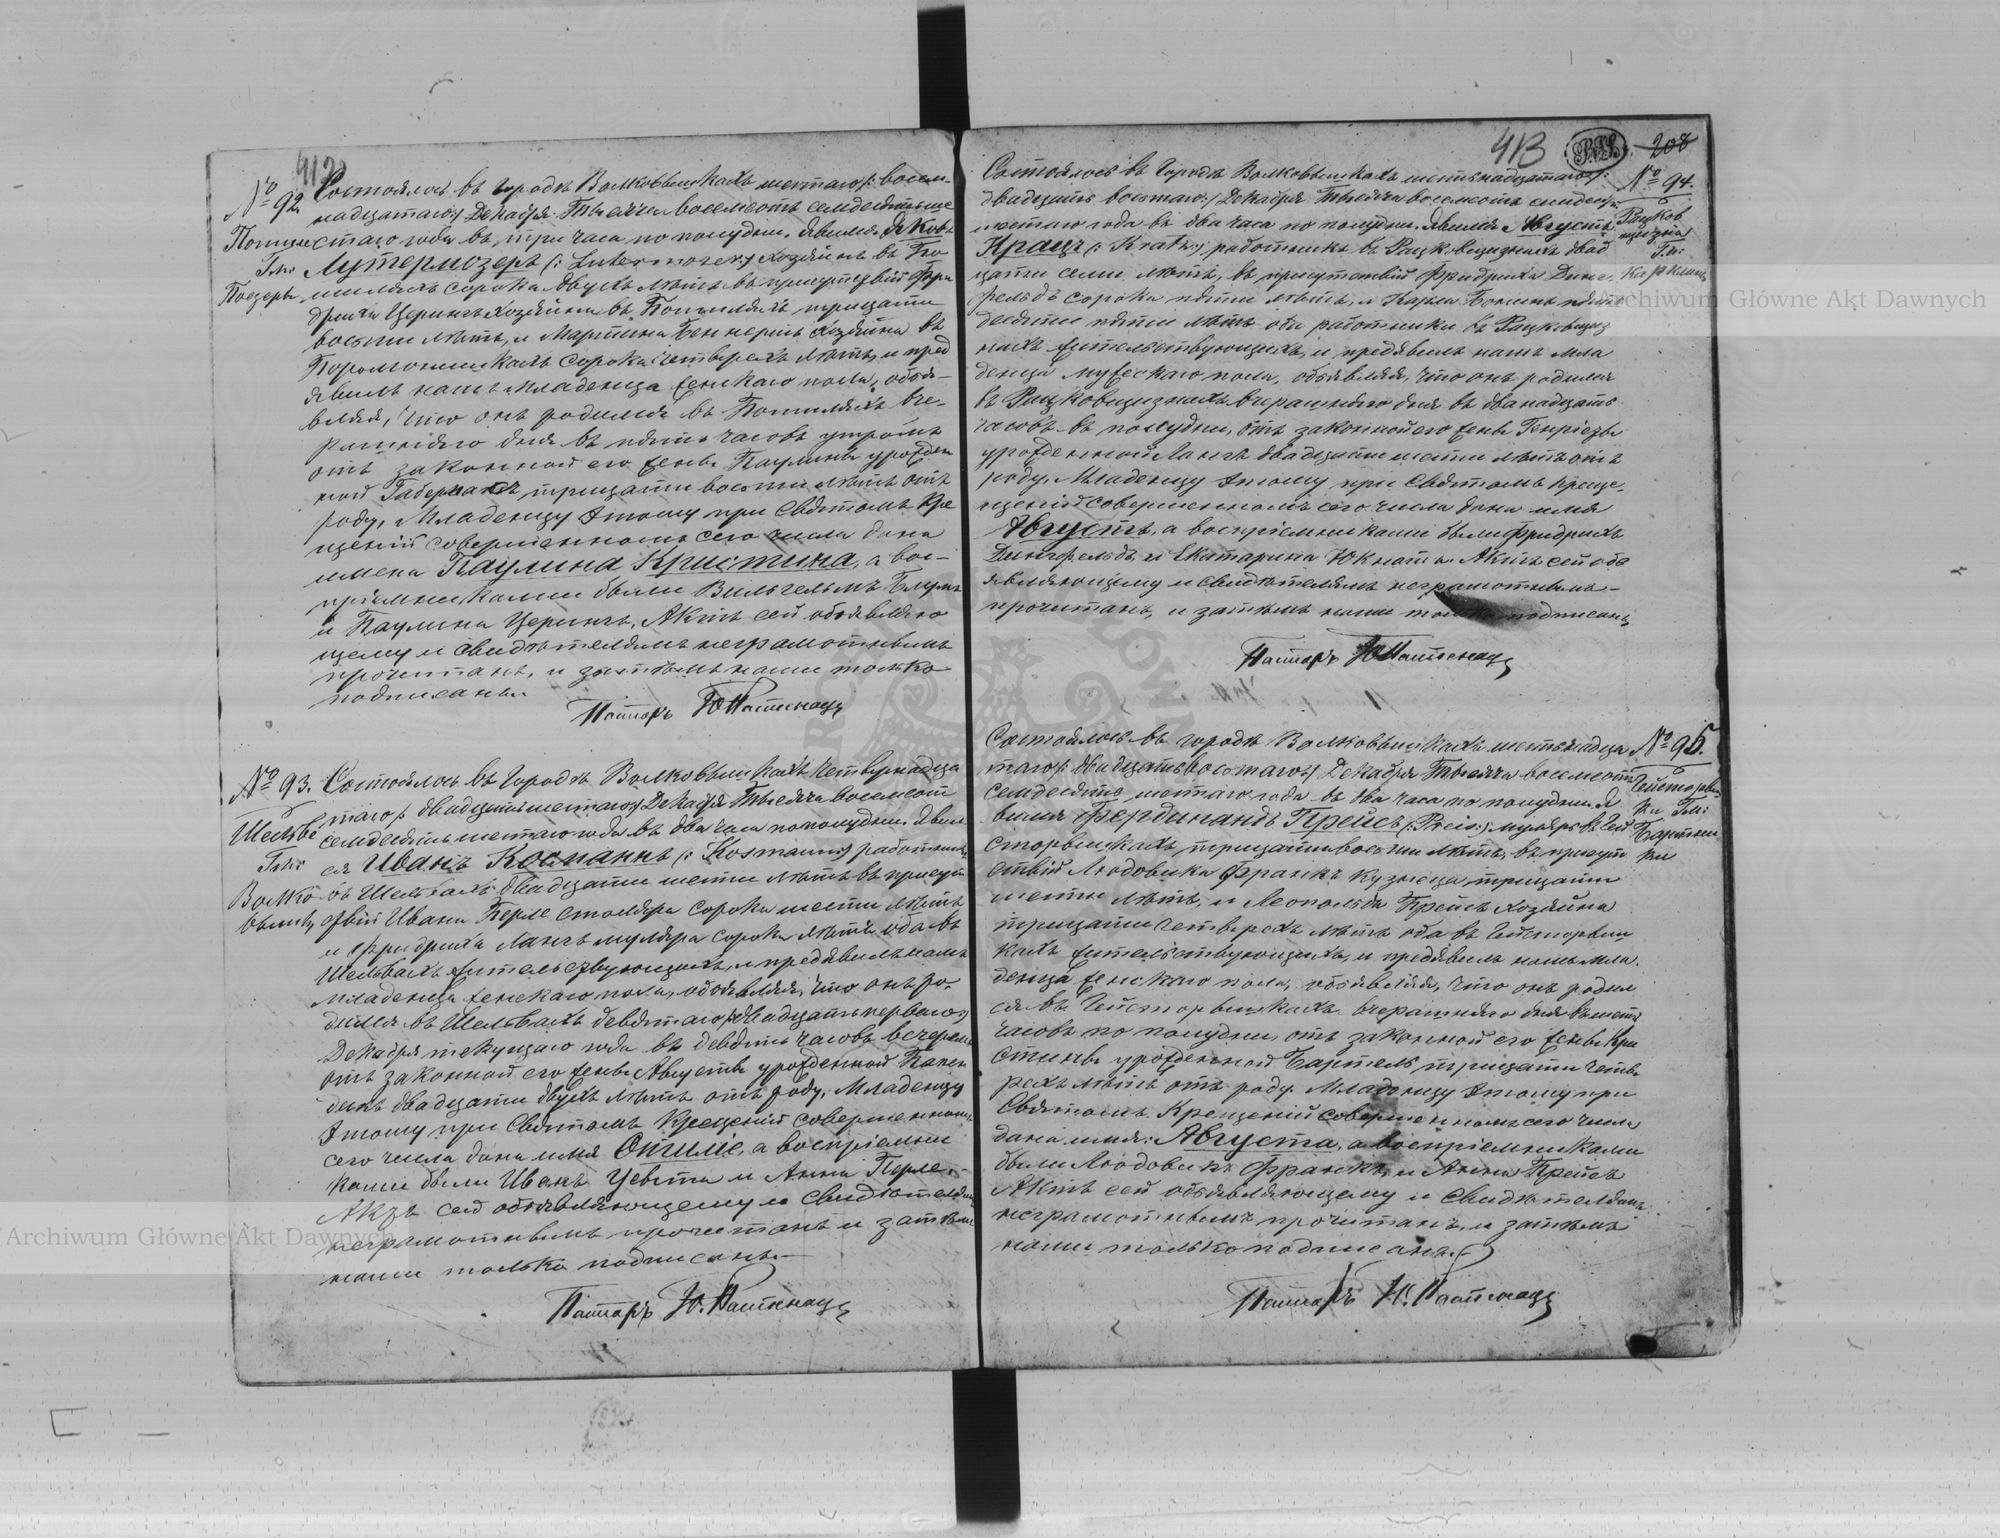 412
№ 92.
Пошиле
Гм:
Поезеры
Состоялось въ городѣ Волковышкахъ шестаго /: восем-
надцатаго :/ Декабря Тысяча восемсотъ семдесятъ ше
стаго года въ три часа по полудни. Явился Яковъ
Лутермозеръ (: Lutermoser :) хозяинъ въ По
шиляхъ сорока двухъ лѣтъ въ присутствіи Фри
дриха Церинъ хозяина въ Пошиляхъ тридцати
восьми лѣтъ, и Мартина Беннеръ хозяина въ
сорока четверехъ лѣтъ, и пред
явилъ намъ младенца женскаго пола, объя-
вляя, что онъ родился въ Пошиляхъ вче-
рашняго дня въ пять часовъ утромъ
отъ законной его жены Паулины урожден
ной Габерманъ тридцати восьми лѣтъ отъ
роду, Младенцу этому при Святомъ Кре
щеніи совершенномъ сего числа дана
имена Паулина Кристина, а вос-
пріемниками были Вильгельмъ Блумъ
и Паулина Церинъ, Актъ сей объявляю
щему и свидѣтелямъ неграмотнымъ
прочитанъ, и затѣмъ нами только
подписанъ.
Пасторъ
№ 93.
Шельве
Гм:
Волко-
вышк,
Состоялось въ городѣ Волковышкахъ четвернадца
таго /: двадцать шестаго :/ Декабря Тысяча восемсот
семдесятъ шестаго года въ два часа по полудни. Явил
ся Иванъ Косманнъ (: Kosmann :) работникъ
въ Шельвахъ двадцати шести лѣтъ въ присут
ствіи Ивана Перле столяра сорока шести лѣтъ
и Фридриха Лангъ муляра сорока лѣтъ оба въ
Шельвахъ жительствующихъ, и предявилъ намъ
младенца женскаго пола, объявляя, что онъ ро-
дился въ Шельвахъ девятаго /: двадцать перваго :/
Декабря текущаго года въ девять часовъ вечеромъ
отъ законной его жены Августы урожденной Папен
дикъ двадцати двухъ лѣтъ отъ роду, Младенцу
этому при Святомъ Крещеніи совершенномъ
сего числа дана имя Отиліе, а воспріемни
ками были Иванъ и Анна Перле.-
Актъ сей объявляющему и свидѣтелямъ
неграмотнымъ прочитанъ и затѣмъ
нами только подписанъ.
Пасторъ
413
208
№ 94.
Рацков
щизна
Гм:
Состоялось въ городѣ Волковышкахъ шестьнадцатаго /:
двадцать восьмаго :/ Декабря Тысяча восемсотъ семдесят
шестаго года въ два часа по полудни. Явился Августъ
Крацъ (: Kratz :) работникъ въ Рацковщизнахъ двад
цати семи лѣтъ, въ присутствіи Фридриха Динг-
фельдъ сорока пяти лѣтъ, и Карла пять
десяти пяти лѣтъ оба работники въ Рацковщиз
нахъ жительствующихъ, и предявилъ намъ мла
денца мужескаго пола, объявляя, что онъ родился
въ Рацковщизнахъ вчерашняго дня въ дванадцать
часовъ въ полудни, отъ законной его жены Генріезы
урожденной Лангъ двадцати шести лѣтъ отъ
роду. Младенцу этому при Святомъ Креще-
щеніи совершенномъ сего числа дана имя
Августъ, а воспріемниками были Фридрихъ
Дингфельдъ и Екатарина Юкнатъ. Актъ сей объ
являющему и свидѣтелямъ неграмотнымъ-
прочитанъ, и затѣмъ нами только подписанъ
Пасторъ
№ 95.
Гм:
Состоялось въ городѣ Волковышкахъ шестьнадца
таго /: двадцать восьмаго :/ Декабря Тысяча восемсотъ
семдесятъ шестаго года въ два часа по полудни. Я
вился Фердинандъ Прейсъ (: Preis :) муляръ въ Гей
сторвишкахъ тридцати восьми лѣтъ, въ присут
ствіи Людовика Франкъ кузнеца тридцати
шести лѣтъ, и Леопольда Прейсъ хозяина
тридцати четверехъ лѣтъ оба въ Гейсторвиш
кахъ жительствующихъ, и предявилъ намъ мла-
денца женскаго пола, объявляя, что онъ родил
ся въ Гейсторвишкахъ вчерашняго дня въ шесть
часовъ по полудни отъ законной его жены Кри
стины урожденной Бартель тридцати четы
рехъ лѣтъ отъ роду. Младенцу этому при
Святомъ Крещеніи совершенномъ сего числа
дана имя: Августа, а воспріемниками
были Людовикъ Франкъ, и Анна Прейсъ
Актъ сей объявляющему и свидѣтелямъ
неграмотнымъ прочитанъ, и затѣмъ
нами только подписанъ.
Пасторъ
Archiwum Główne Akt Dawnych
Archiwum Główne Akt Dawnych